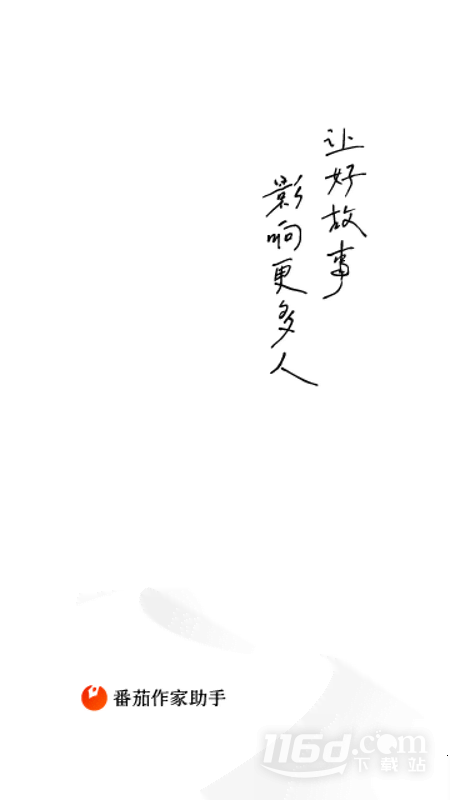 让好故事
影响更多人
番茄作家助手
116d.com
下载站